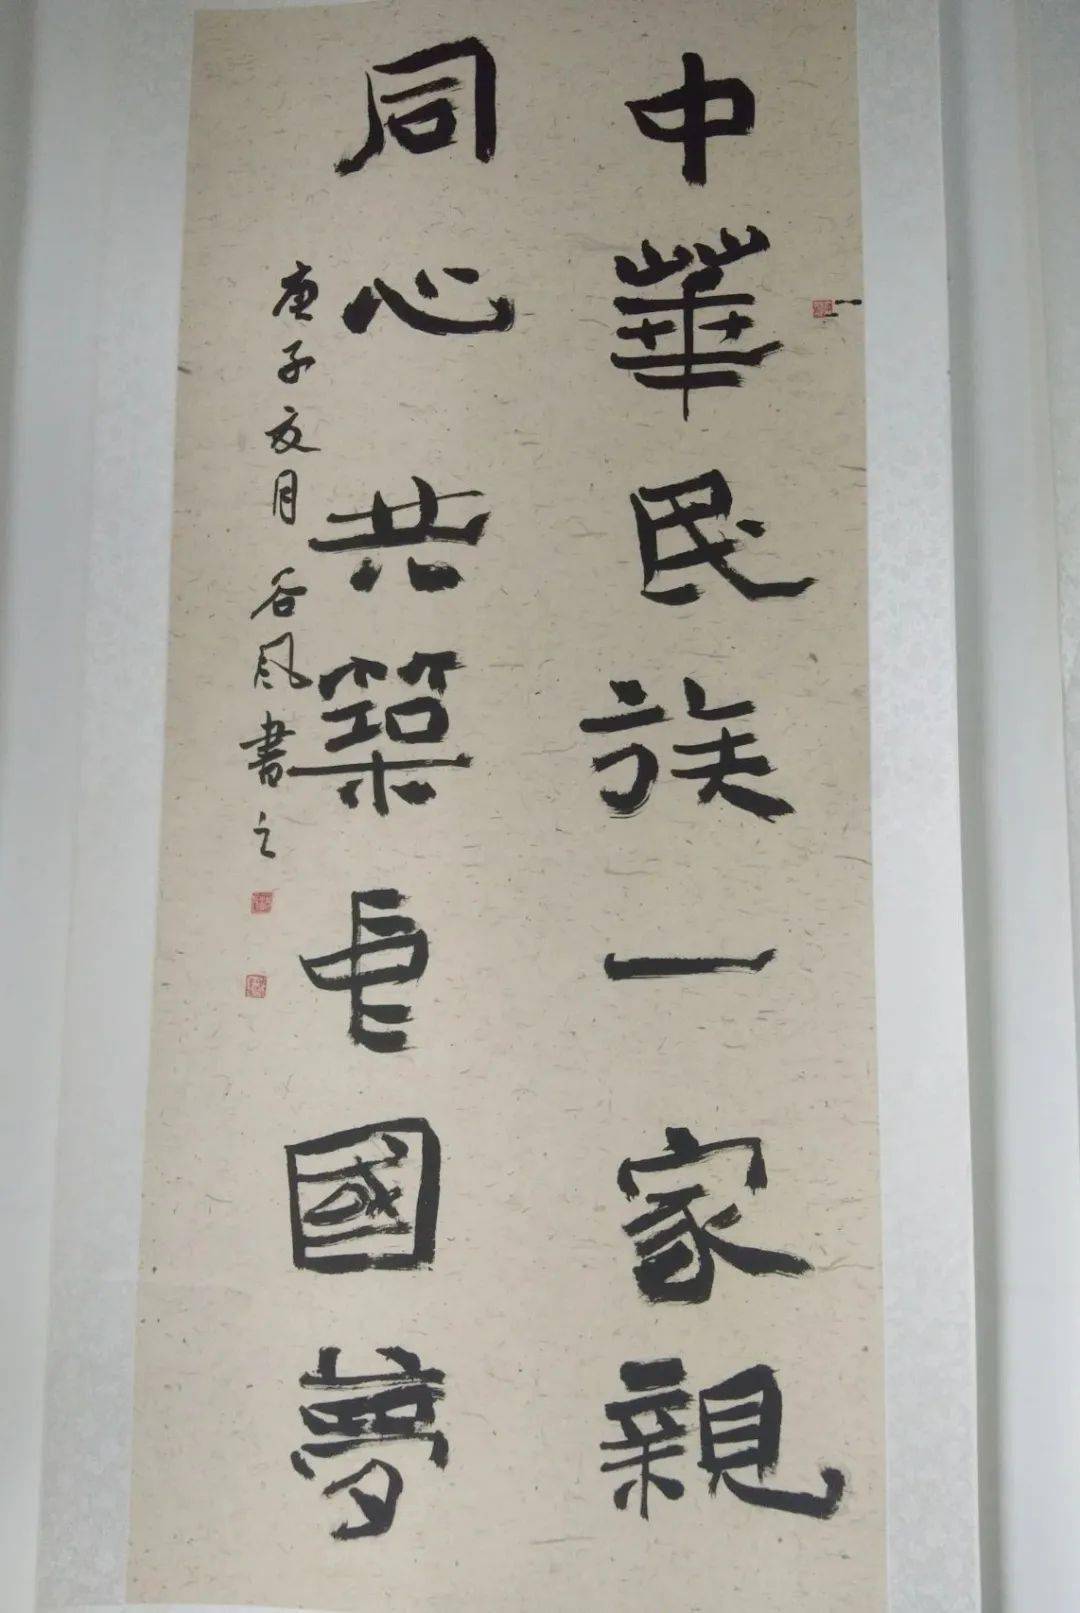 中華民族一家親
同心共築中國夢
庚子夏月谷風書之